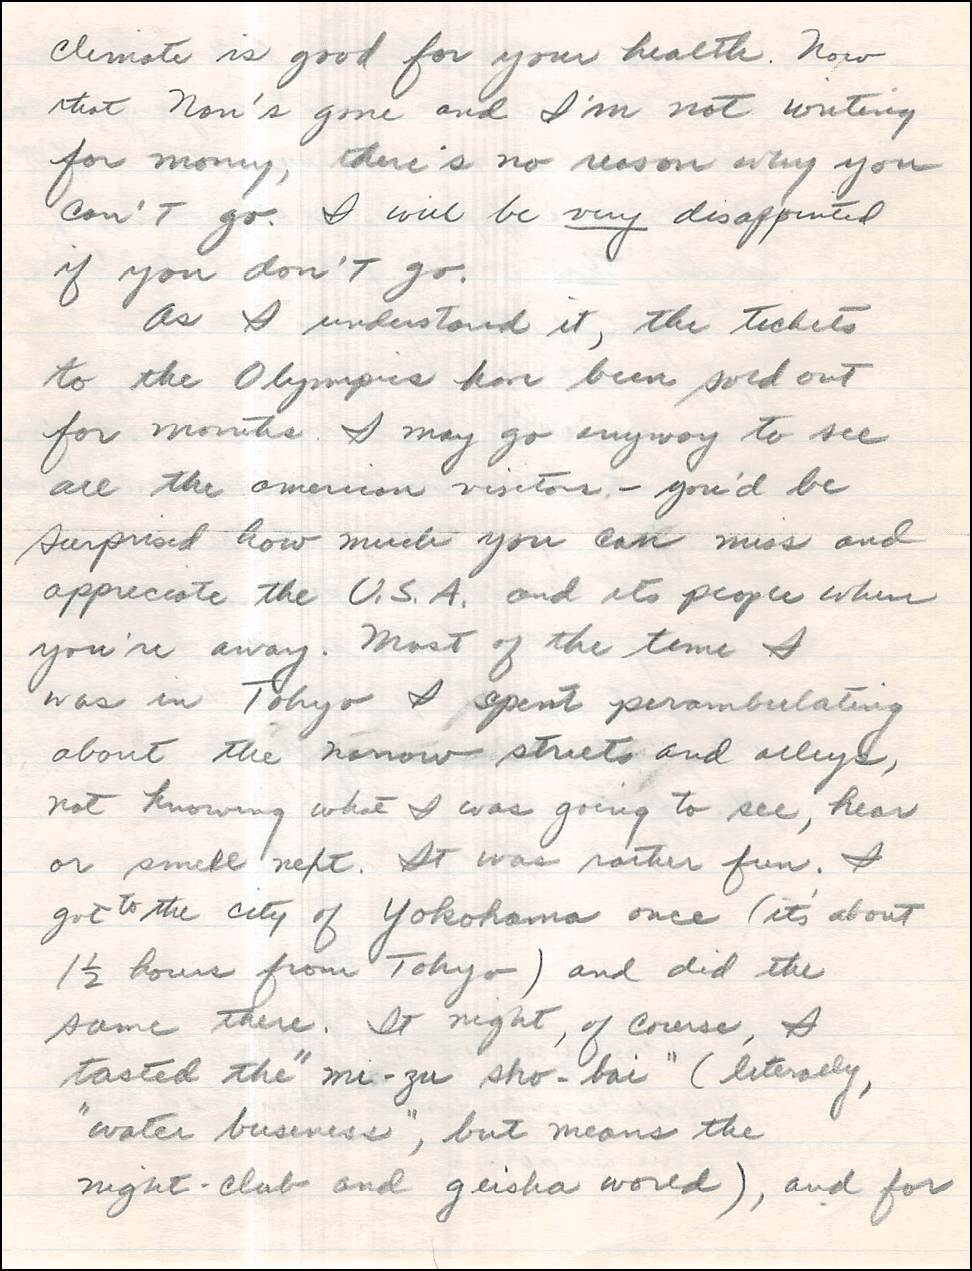 climate is good for your health. Now
that Nan's gone and I'm not writing
for money, there's no reason why you
can't go. I will be very disappointed
if you don't go.
As I understand it, the tickets
to the Olympics have been sold out
for months. I may go anyway to see
all the American visitors, - you'd be
surprised how much you can miss and
appreciate the U.S.A. and its people when
you're away. Most of the time I
was in Tokyo I spent perambulating
about the narrow streets and alleys,
not knowing what I was going to see, hear
or smell next. It was rather fun. I
got to the city of Yokohama once (it's about
1½ hours from Tokyo) and did the
same there. At night, of course, I
tasted the "mi-zu sho-bai" (literally,
"water business", but means the
night-club and geisha world), and for